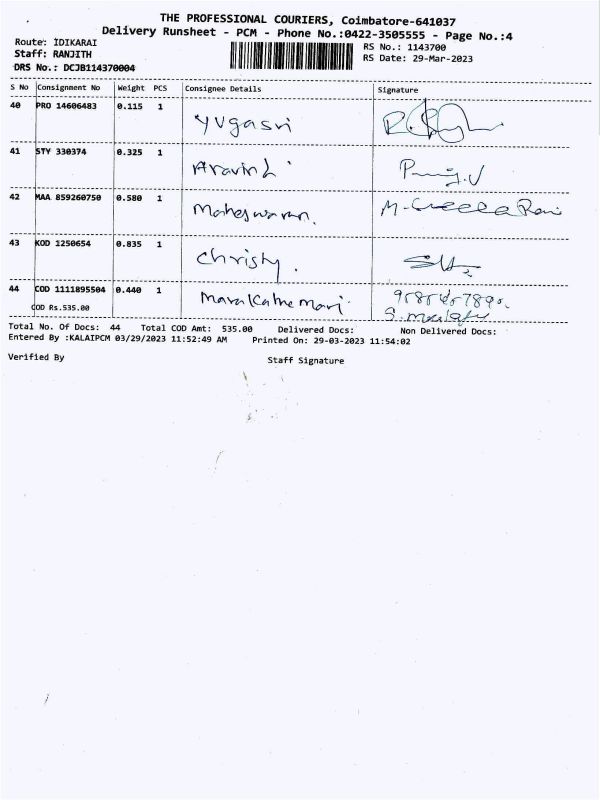 THE PROFESSIONAL COURIERS, Coimbatore-641037
Delivery Runsheet - PCM - Phone No.:0422-3505555 - Page No.:4
Route: IDIKARAI
RS No.: 1143700
Staff: RANJITH
RS Date: 29-Mar-2023
DRS No.: DCJB114370004
S No Consignment No Weight PCS Consignee Details Signature
40 PRO 14606483 0.115 1 Yugasri
41 STY 330374 0.325 1 Aravind
42 MAA 859260750 0.580 1 Maheswaran.
43 KOD 1250654 0.835 1 Christy.
44 COD 1111895504 0.440 1
COD Rs.535.00
Total No. Of Docs: 44 Total COD Amt: 535.00 Delivered Docs: Non Delivered Docs:
Entered By :KALAIPCM 03/29/2023 11:52:49 AM Printed On: 29-03-2023 11:54:02
Verified By Staff Signature